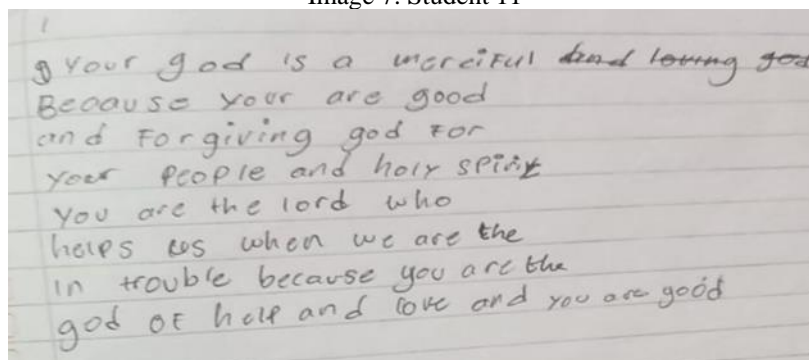 Image 7: Student 11
1
g your god is a merciful and loving god
Because your are good
and Forgiving god For
your people and holy spirit
you are the lord who
helps us when we are the
in trouble because you are the
god of help and love and you are good